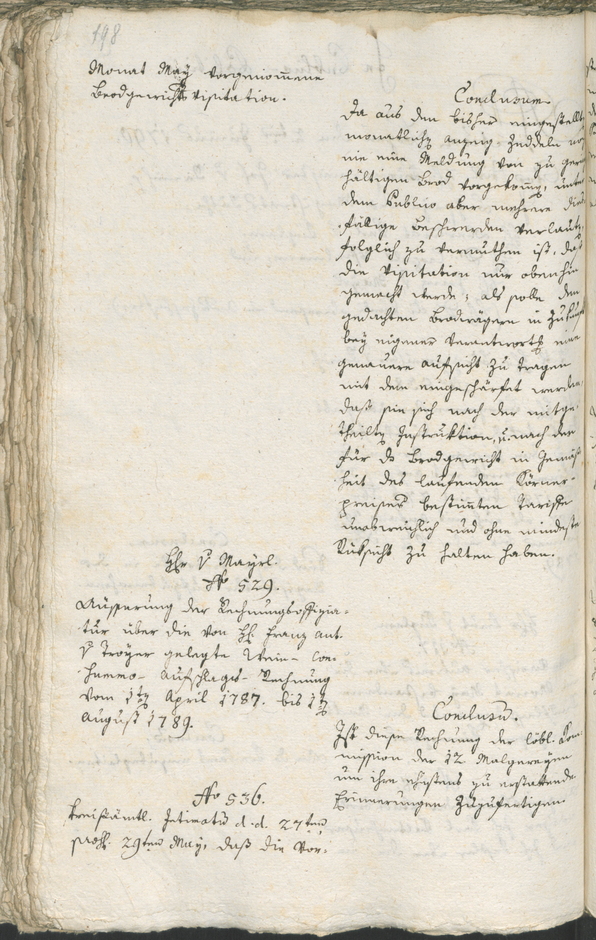 198
Monat May vorgenommene
Brodgewichts Visitation.
Conclusum
Da aus den bisher eingestellt
monatlichen anzeig Zedeln no
nie eine Meldung von zu geri
hältigen Brod vorgekommen, unter
dem Publico aber mehrere dies
fällige Beschwerden verlaut
folglich zu vermuthen ist, daß
die Visitation nur obenhin
gemacht werde; als solle den
gedachten Brodwägern in Zukunft
bey eigener Verantwortung eine
genauere aufsicht zu tragen
mit dem eingeschärfet werden,
daß sie sich nach der mitge-
theilten Instruktion, u. nach der
für das Brodgewicht in Gemäß-
heit des laufenden Körner-
preises bestimten Tariffe
unabweichlich und ohne mindeste
Rücksicht zu halten haben.
Hr. v Mayrl.
No 529.
Äusserung der Rechnungsoffizia-
tur über die von H. Franz Ant.
v Troyer gelegte Wein- Con-
summo- Aufschlags- Rechnung
vom 1ten April 1787. bis 1ten
August 1789.
Conclusum.
Ist diese Rechnung der löbl. Com-
mission der 12 Malgreyen
um ihre ehestens zu erstattende
Erinnerungen zuzufertigen.
No 536.
Kreisämtl. Intimatum d.d. 27ten
praes. 29ten May, daß die Vor-